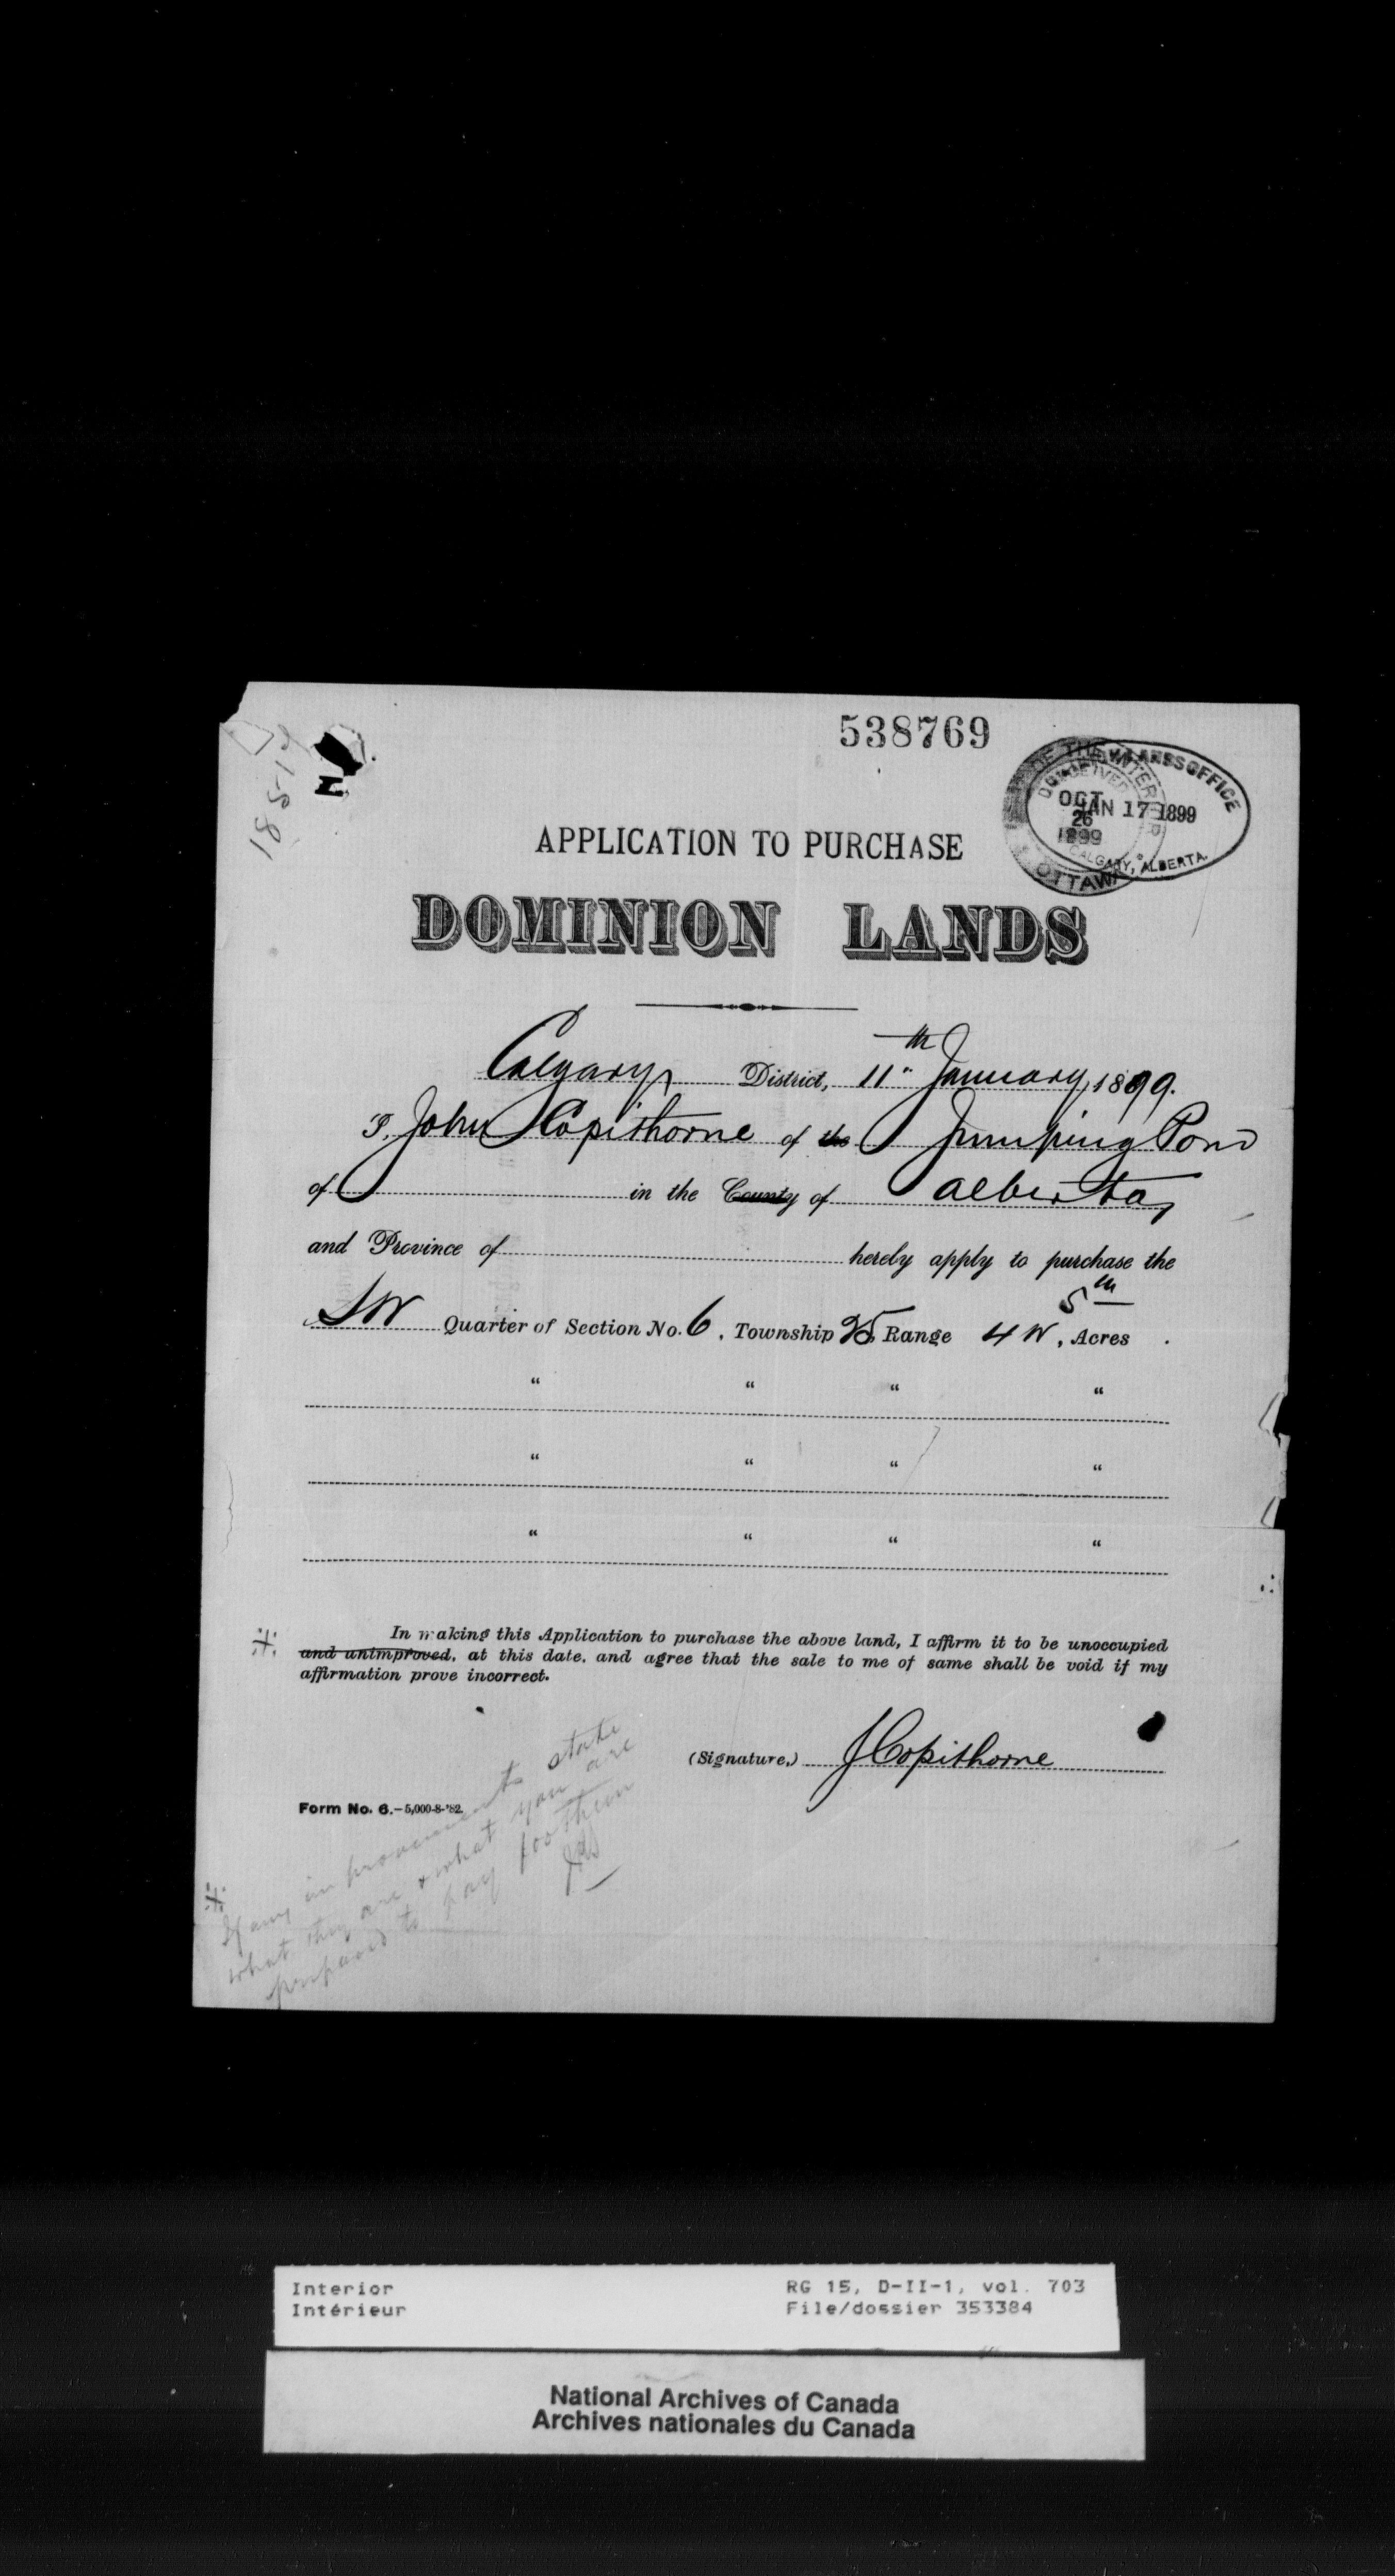 538769
18-5-19
LANDS OFFICE
RECEIVED
OCT 26 1899
JAN 17 1899
OTTAWA
CALGARY, ALBERTA.
APPLICATION TO PURCHASE
DOMINION LANDS
Calgary District, 11th January, 1899.
I, John Copithorne of the Jumping Pond
of in the County of Alberta,
and Province of hereby apply to purchase the
5th
SW Quarter of Section No. 6, Township 25, Range 4 W, Acres .
" " " "
" " " "
" " " "
In making this Application to purchase the above land, I affirm it to be unoccupied
and unimproved, at this date, and agree that the sale to me of same shall be void if my
affirmation prove incorrect.
(Signature,) J Copithorne
Form No. 6.—5,000-8-'82.
If any improvements state
what they are & what you are
prepared to pay for them
Interior RG 15, D-II-1, vol. 703
Intérieur File/dossier 353384
National Archives of Canada
Archives nationales du Canada